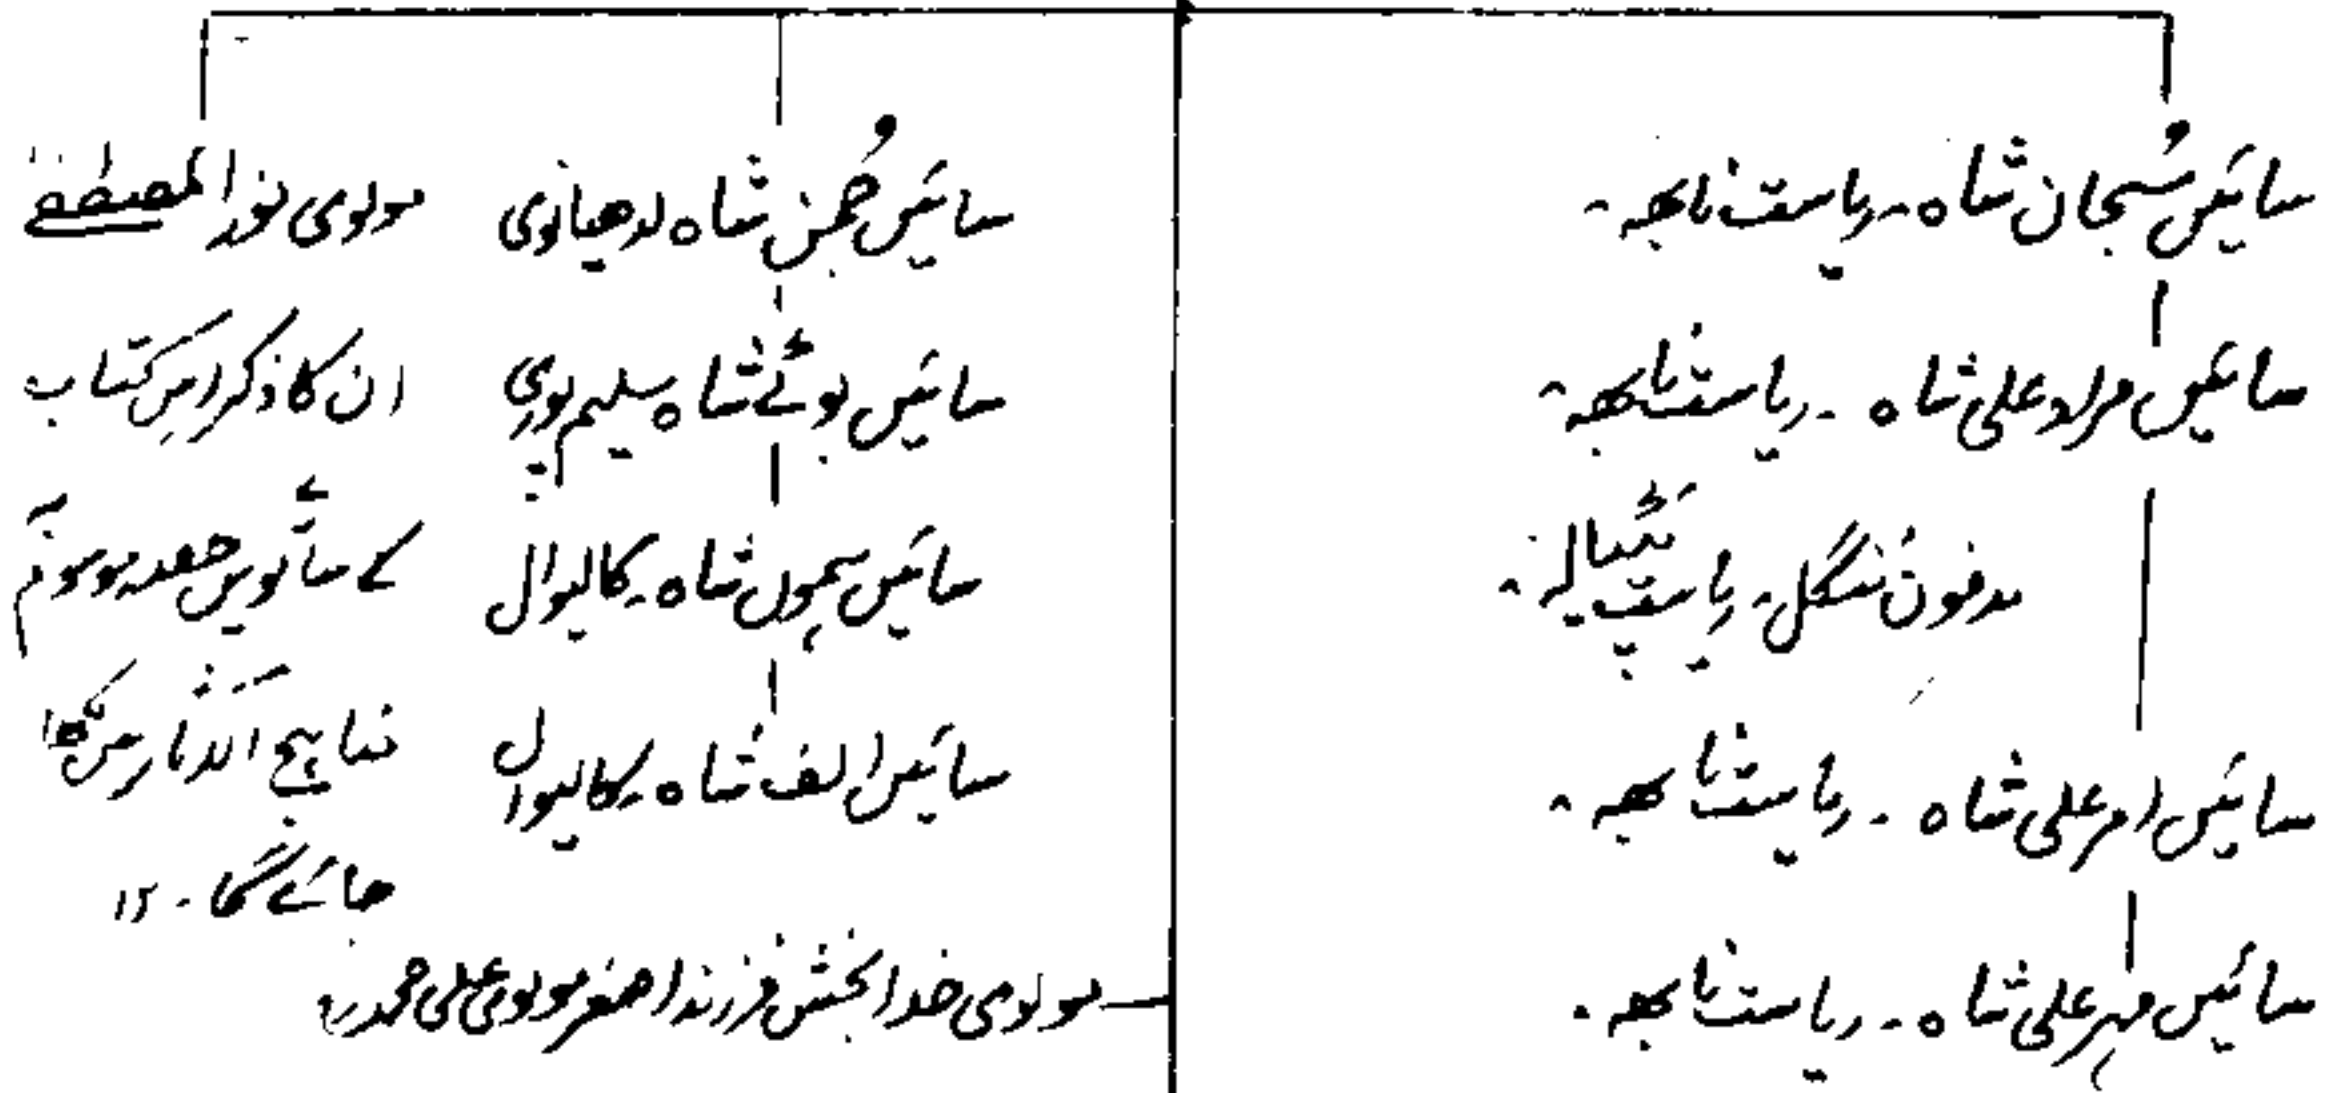 سائیں سُبحان شاہ۔ ریاست نابھہ۔
سائیں مراد علی شاہ۔ ریاست نابھہ۔
مدفون ننگل۔ ریاست پٹیالہ۔
سائیں امر علی شاہ۔ ریاست نابھہ۔
سائیں مہر علی شاہ۔ ریاست نابھہ۔
سائیں جُمن شاہ لدھیانوی
سائیں بوٹے شاہ سلیم پوری
سائیں شاہ۔ کالیوال
سائیں الف شاہ۔ کالیوال
مولوی نور المصطفےٰ
ان کا ذکر اس کتاب
کے ساتویں حصہ موسوم بہ
نتایج الآثار میں کیا
جائے گا۔ ۱۲
مولوی خدا بخش فرزند اصغر مولوی علی محمدؒ